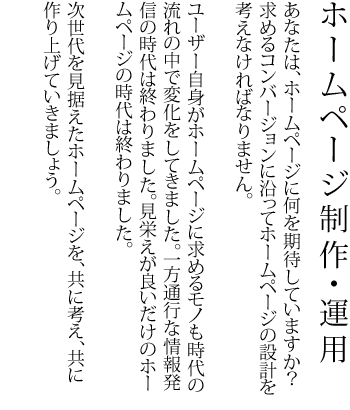 ホームページ制作・運用
あなたは、ホームページに何を期待していますか？
求めるコンバージョンに沿ってホームページの設計を
考えなければなりません。
ユーザー自身がホームページに求めるモノも時代の
流れの中で変化をしてきました。一方通行な情報発
信の時代は終わりました。見栄えが良いだけのホー
ムページの時代は終わりました。
次世代を見据えたホームページを、共に考え、共に
作り上げていきましょう。